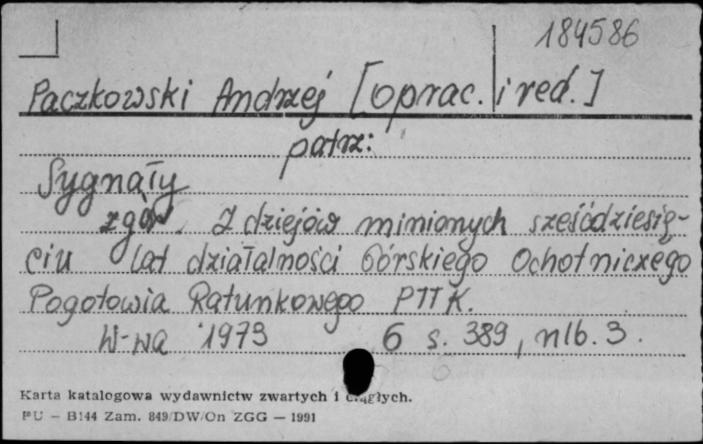 184586
Paczkowski Andrzej [oprac. i red.]
patrz:
Sygnały
z gór. Z dziejów minionych sześćdziesię-
ciu lat działalności Górskiego Ochotniczego
Pogotowia Ratunkowego PTTK.
W-wa 1973 6 s. 389, nlb. 3.
Karta katalogowa wydawnictw zwartych i ciągłych.
PU — B144 Zam. 849/DW/On ZGG — 1991